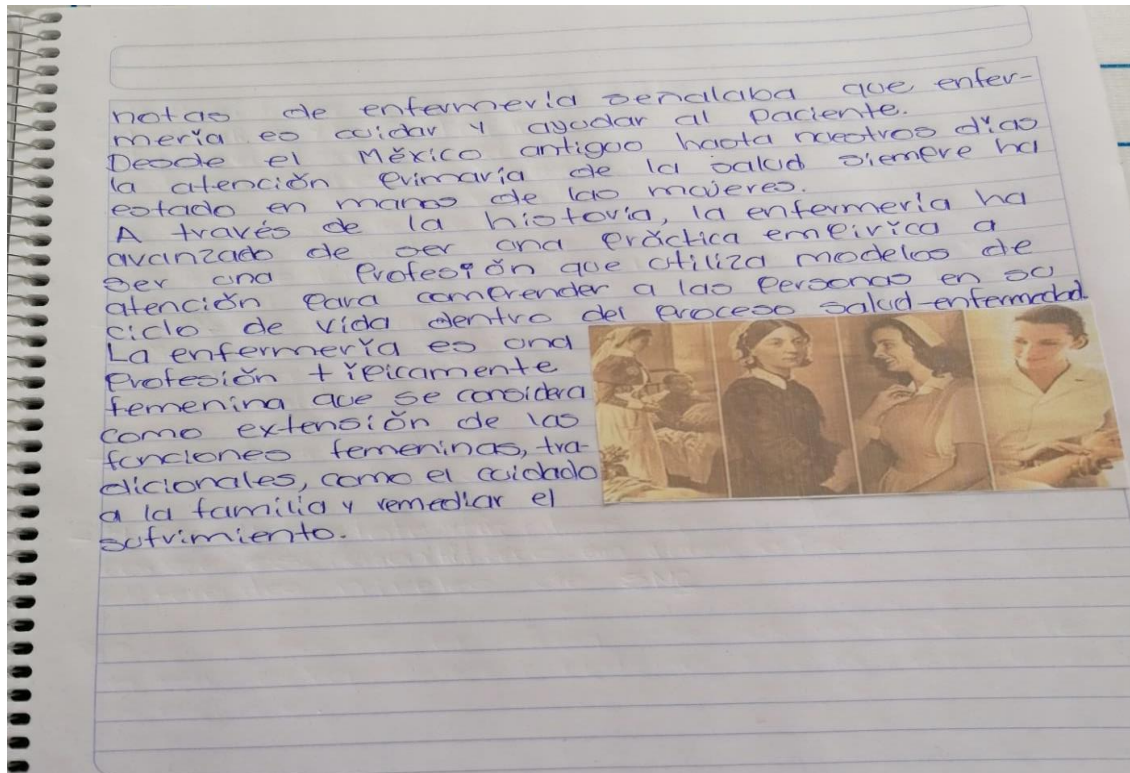 notas de enfermería señalaba que enfer-
mería es cuidar y ayudar al paciente.
Desde el México antiguo hasta nuestros días
la atención primaria de la salud siempre ha
estado en manos de las mujeres.
A través de la historia, la enfermería ha
avanzado de ser una práctica empírica a
ser una Profesión que utiliza modelos de
atención para comprender a las personas en su
ciclo de vida dentro del proceso salud-enfermedad.
La enfermería es una
profesión típicamente
femenina que se considera
como extensión de las
funciones femeninas, tra-
dicionales, como el cuidado
a la familia y remediar el
sufrimiento.